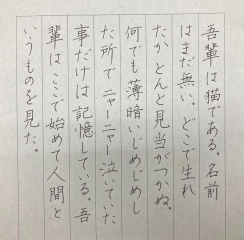 吾輩は猫である。名前
はまだ無い。どこで生れ
たかとんと見当がつかぬ。
何でも薄暗いじめじめし
た所でニャーニャー泣いていた
事だけは記憶している。吾
輩はここで始めて人間と
いうものを見た。